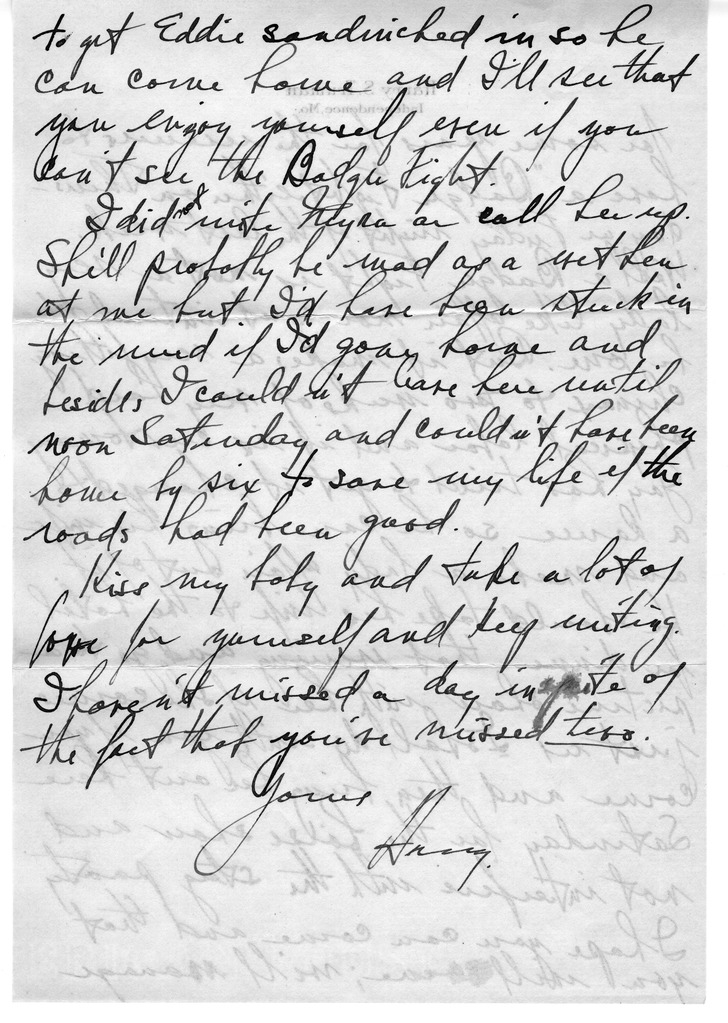 to get Eddie sandwiched in so he
can come home and I'll see that
you enjoy yourself even if you
can't see the Badger Fight.
I did not write Myra or call her up.
She'll probably be mad as a wet hen
at me but I'd have been stuck in
the mud if I'd gone home and
besides I couldn't leave here until
noon Saturday and couldn't have been
home by six to save my life if the
roads had been good.
Kiss my baby and take a lot of
love for yourself and keep writing.
I haven't missed a day in spite of
the fact that you've missed two.
Yours
Harry.